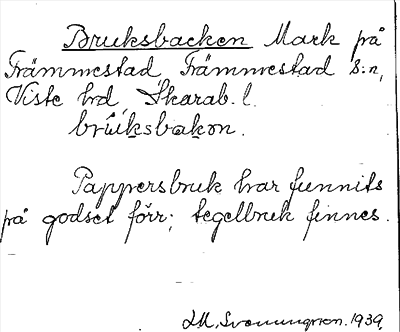 Bruksbacken Mark på
Främmestad, Främmestad s:n,
Viste hd, Skarab. l.
brúksbakən.
Pappersbruk har funnits
på godset förr; tegelbruk finnes.
1939.